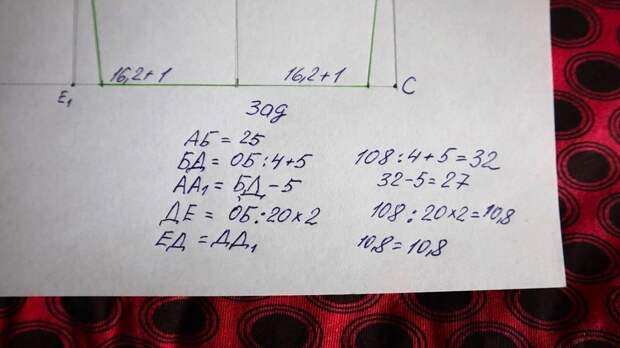 16,2+1 16,2+1
E₁ C
Зад
АБ = 25
БД = ОБ:4+5 108:4+5=32
АА₁ = БД-5 32-5=27
ДЕ = ОБ:20×2 108:20×2=10,8
ЕД = ДД₁ 10,8=10,8